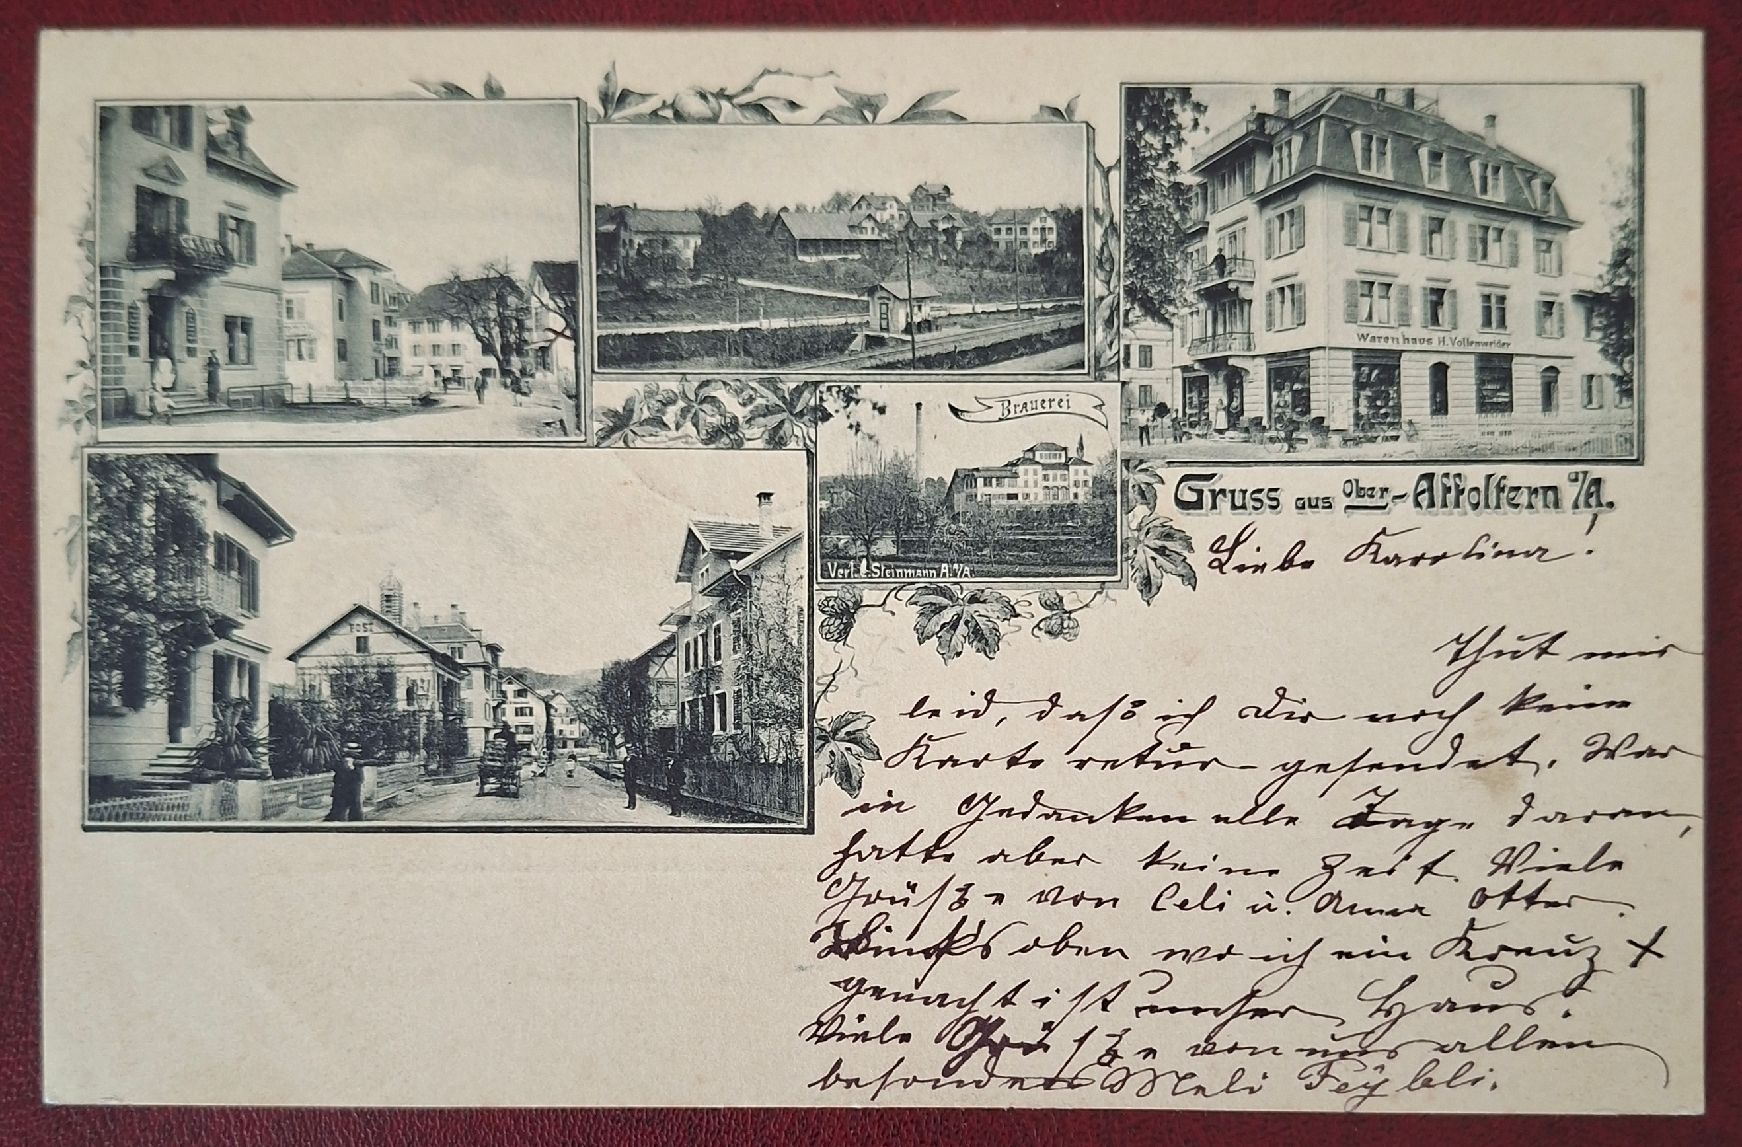 Warenhaus H. Vollenweider
Brauerei
Verl. C. Steinmann A. a/A.
POST
Gruss aus Ober-Affoltern a/A.
Liebe Karolina!
Thut mir
leid, daß ich Dir noch keine
Karte retur-gesendet. War
in Gedanken alle Tage daran,
hatte aber keine Zeit. Viele
Grüße von Celi u. Anna Otter.
Links oben wo ich ein Kreuz +
gemacht ist unser Haus.
Viele Grüße von uns allen
besonders Meli